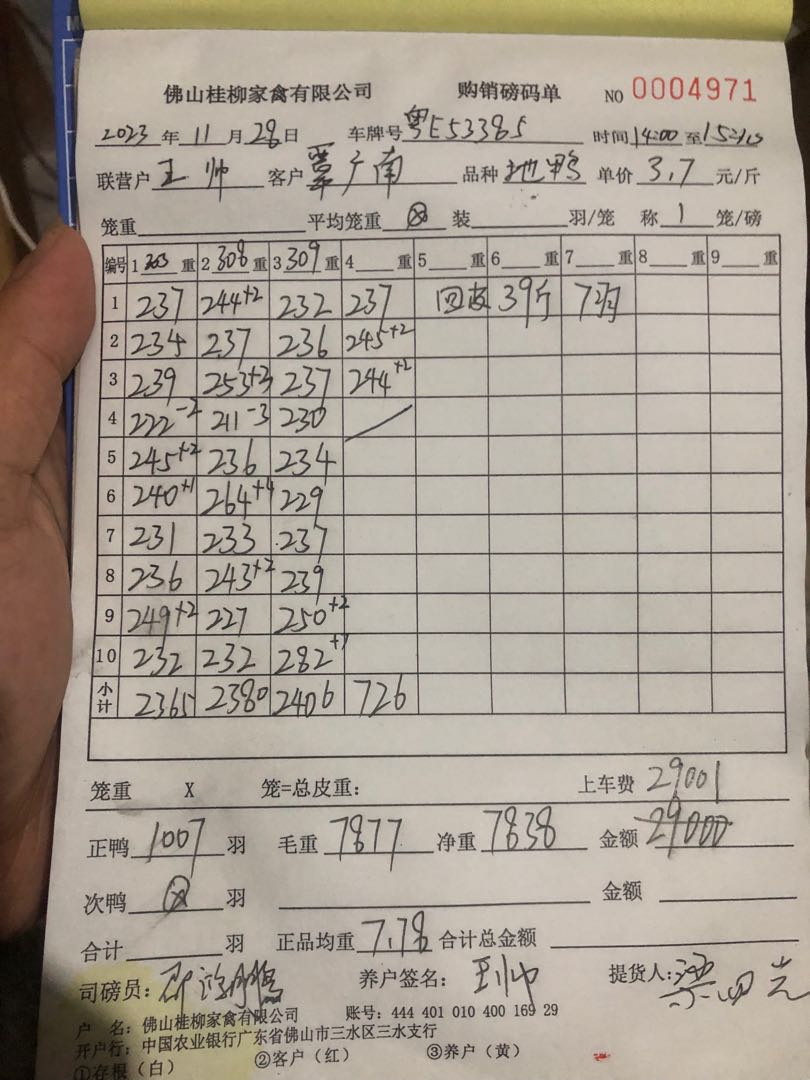 佛山桂柳家禽有限公司 购销磅码单 NO 0004971
2023 年 11 月 28 日 车牌号 粤E53385 时间 14:00 至
联营户 王帅 客户 覃广南 品种 地鸭 单价 3.7 元/斤
笼重 平均笼重 装 羽/笼 称 1 笼/磅
编号 1 303 重 2 308 重 3 309 重 4 重 5 重 6 重 7 重 8 重 9 重
1 237 244+2 232 237 回皮 39斤 7羽
2 234 237 236 245+2
3 239 253+3 237 244+2
4 222-2 211-3 230
5 245+2 236 234
6 240+1 264+4 229
7 231 233 237
8 236 243+2 239
9 249+2 227 250+2
10 232 232 282+7
小计 2365 2380 2406 726
笼重 X 笼=总皮重: 上车费 29001
正鸭 1007 羽 毛重 7877 净重 7838 金额 29000
次鸭 羽 金额
合计 羽 正品均重 7.78 合计总金额
司磅员: 养户签名: 王帅 提货人:
户 名: 佛山桂柳家禽有限公司 账号: 444 401 010 400 169 29
开户行: 中国农业银行广东省佛山市三水区三水支行
①存根(白) ②客户(红) ③养户(黄)